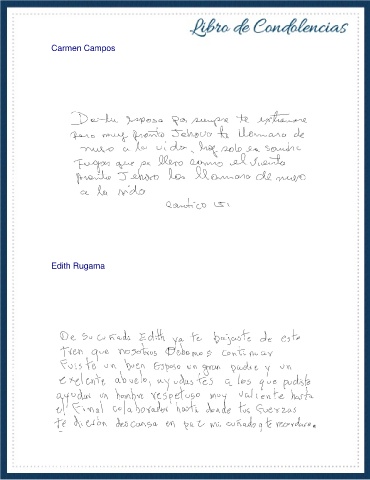 Libro de Condolencias
Carmen Campos
De tu esposa por siempre te extrañare
pero muy pronto Jehova te llamara de
nuevo a la vida, hoy solo es sombra
fugas que se llevo como el viento
pronto Jehova los llamara de nuevo
a la vida
Cantico 151
Edith Rugama
De su cuñada Edith ya te bajaste de este
tren que nosotros Debemos continuar
Fuiste un buen Esposo un gran padre y un
exelente abuelo, ayudastes a los que pudiste
ayudar un hombre respetuso muy valiente hasta
el Final colaborador hasta donde tus Fuerzas
te dieron descansa en paz mi cuñado te recordare.